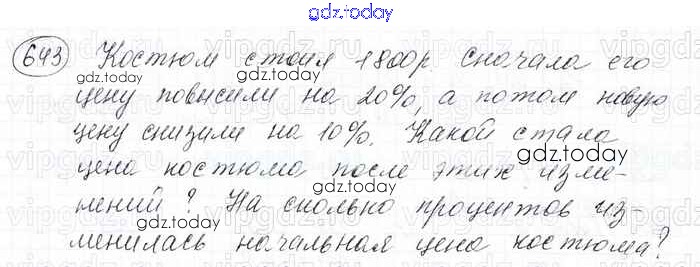 gdz.today
643 Костюм стоил 1800р. Сначала его
gdz.today gdz.today
цену повысили на 20%, а потом новую
цену снизили на 10%. Какой стала
gdz.today
цена костюма после этих изме-
gdz.today
нений? На сколько процентов из-
gdz.today
менилась начальная цена костюма?